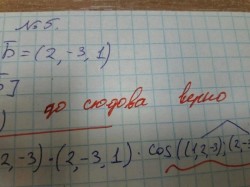 №5.
Б = (2, -3, 1)
Б]
)
до сюдова верно
2, -3) · (2, -3, 1) · cos((1, 2, -3), (2, -3